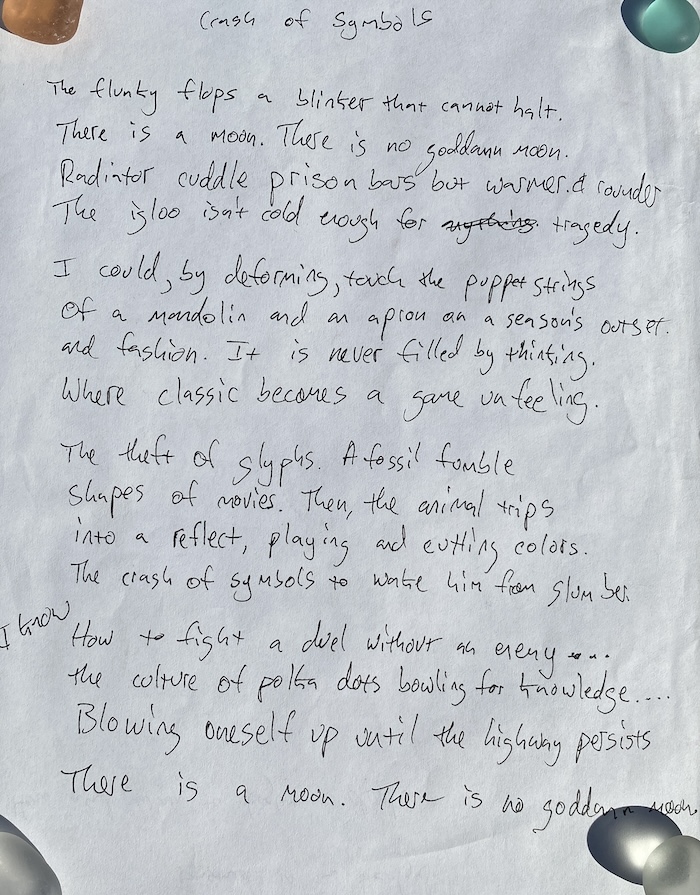 Crash of Symbols
The flunky flops a blinker that cannot halt.
There is a moon. There is no goddamn moon.
Radiator cuddle prison bars but warmer & rounder
The igloo isn't cold enough for anything. tragedy.
I could, by deforming, touch the puppet strings
of a mandolin and an apron on a season's outset.
and fashion. It is never filled by thinking.
Where classic becomes a game unfeeling.
The theft of glyphs. A fossil fumble
shapes of movies. Then, the animal trips
into a reflect, playing and cutting colors.
The crash of symbols to wake him from slumber.
I know How to fight a duel without an enemy ....
the culture of polka dots bowling for knowledge....
Blowing oneself up until the highway persists
There is a moon. There is no goddamn moon.